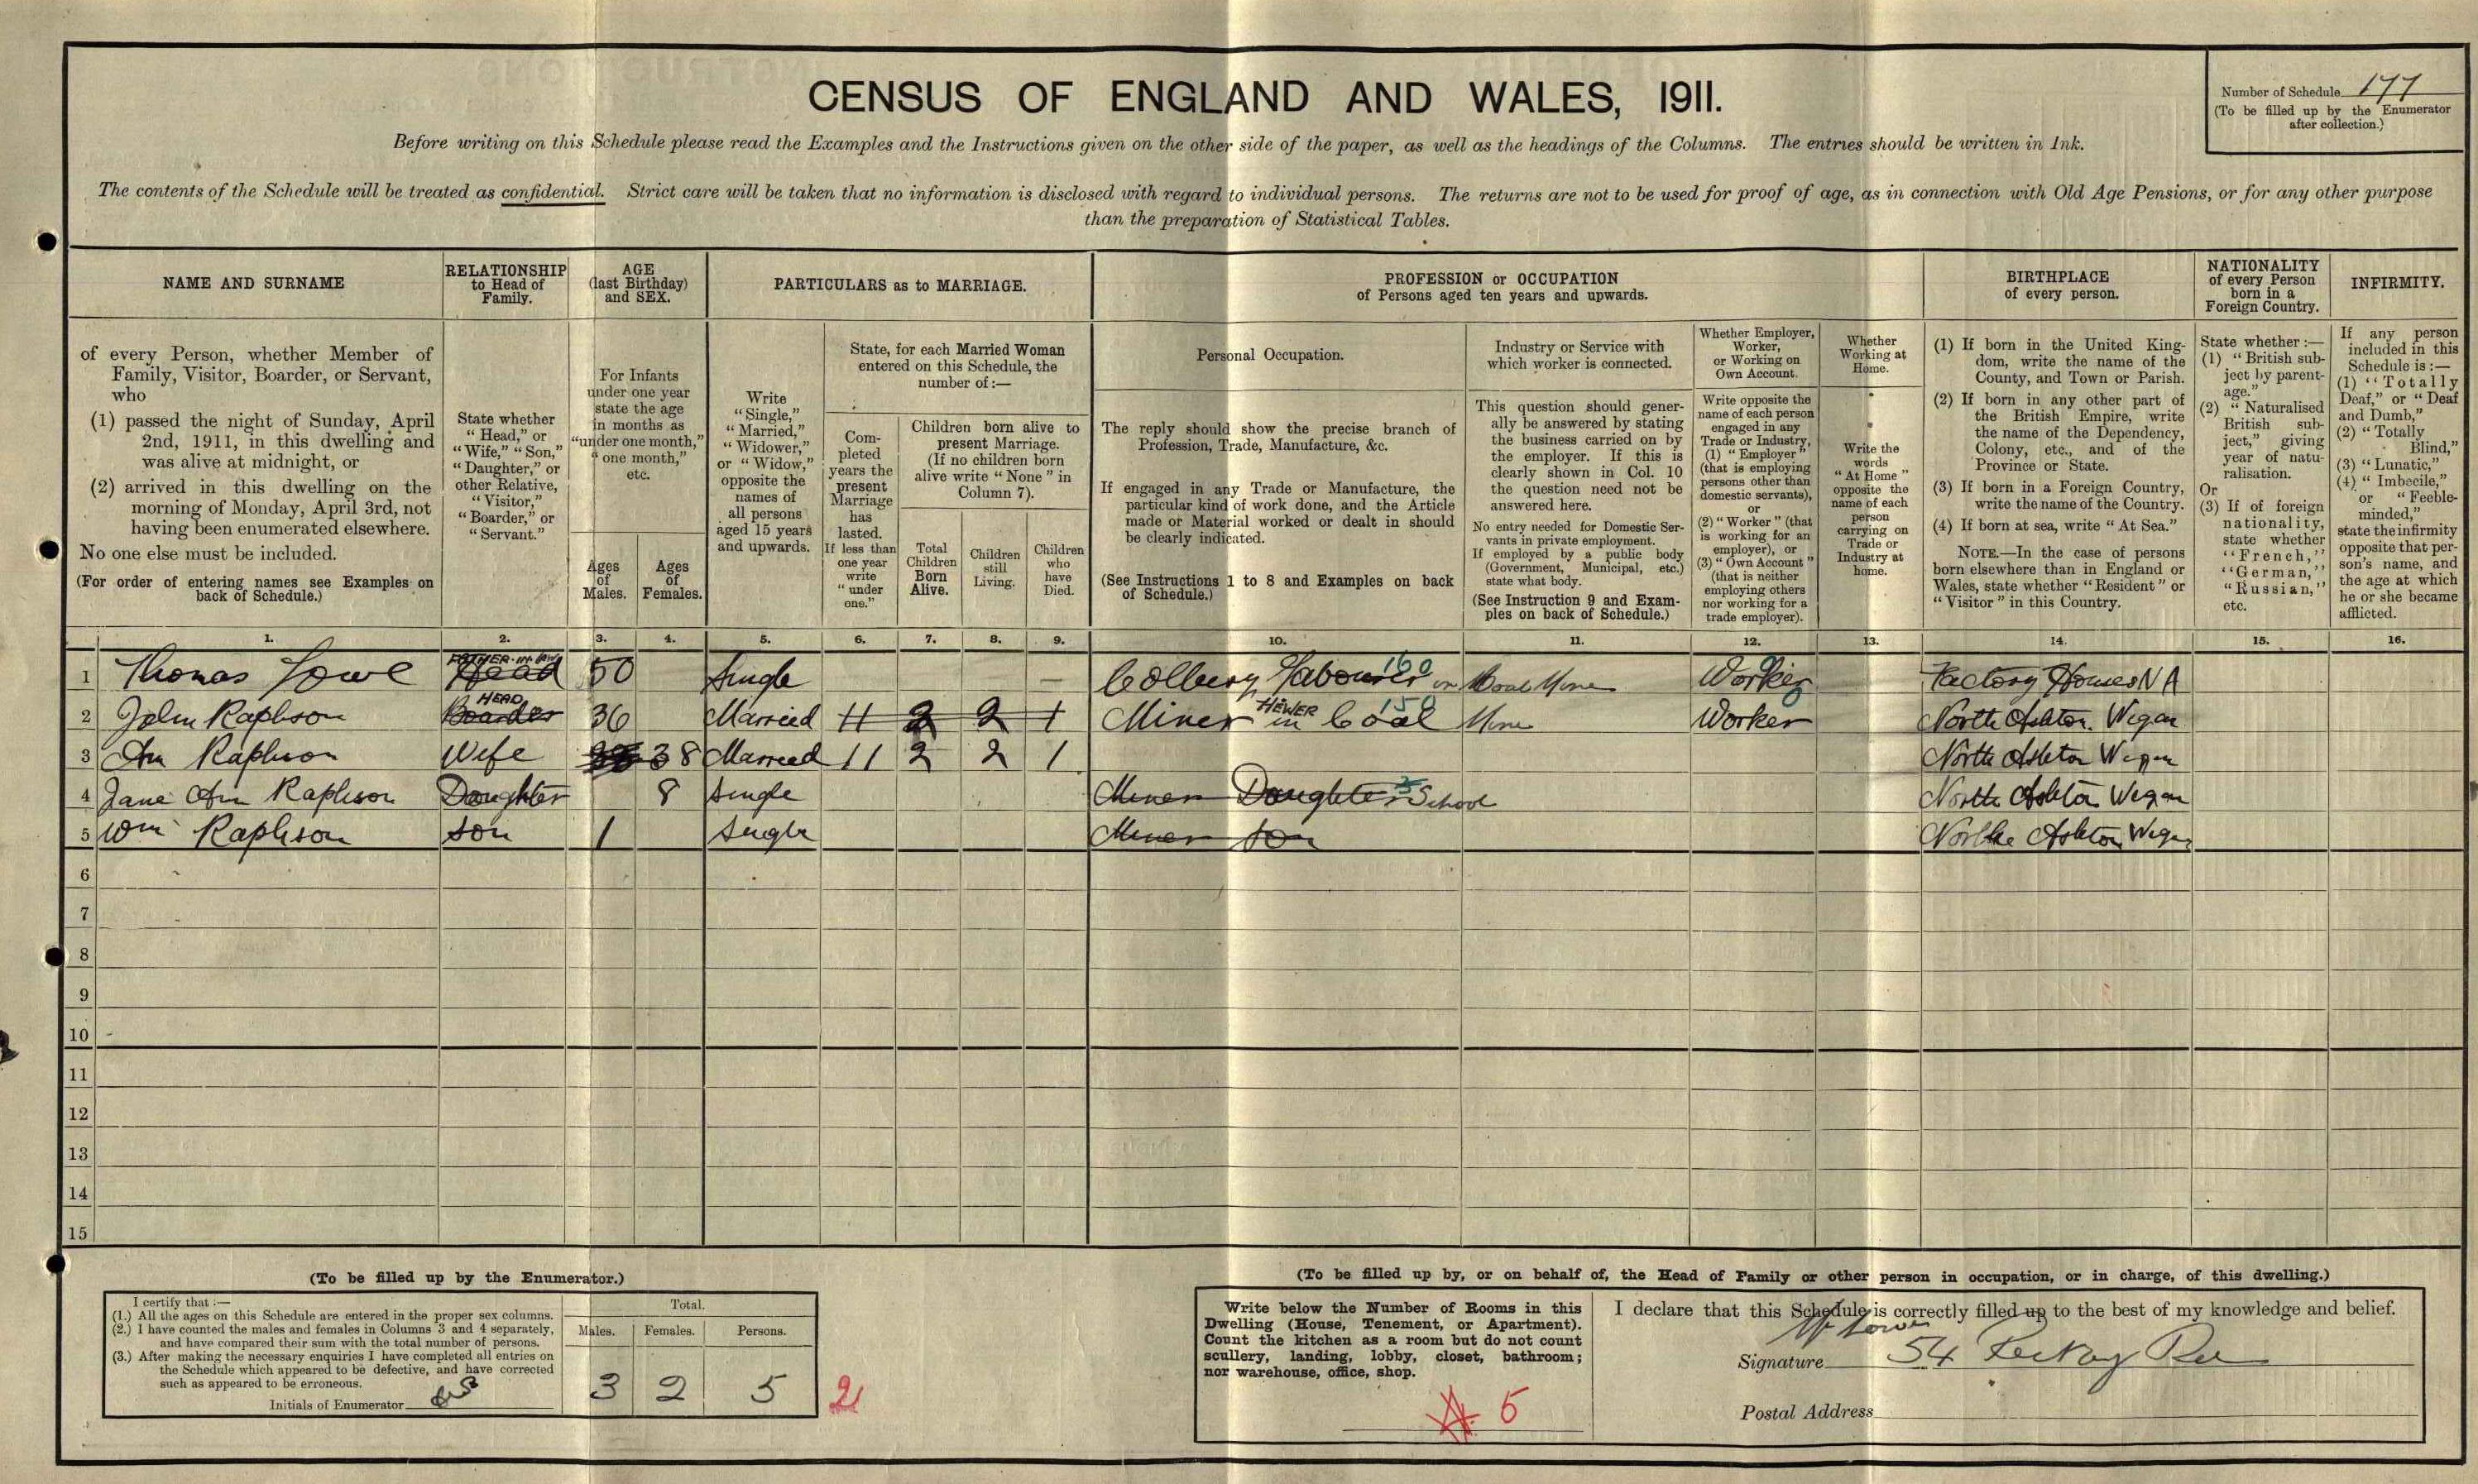 CENSUS OF ENGLAND AND WALES, 1911.
Number of Schedule 177
(To be filled up by the Enumerator
after collection.)
Before writing on this Schedule please read the Examples and the Instructions given on the other side of the paper, as well as the headings of the Columns. The entries should be written in Ink.
The contents of the Schedule will be treated as confidential. Strict care will be taken that no information is disclosed with regard to individual persons. The returns are not to be used for proof of age, as in connection with Old Age Pensions, or for any other purpose
than the preparation of Statistical Tables.
NAME AND SURNAME
of every Person, whether Member of
Family, Visitor, Boarder, or Servant,
who
(1) passed the night of Sunday, April
2nd, 1911, in this dwelling and
was alive at midnight, or
(2) arrived in this dwelling on the
morning of Monday, April 3rd, not
having been enumerated elsewhere.
No one else must be included.
(For order of entering names see Examples on
back of Schedule.)
RELATIONSHIP
to Head of
Family.
State whether
"Head," or
"Wife," "Son,"
"Daughter," or
other Relative,
"Visitor,"
"Boarder," or
"Servant."
AGE
(last Birthday)
and SEX.
For Infants
under one year
state the age
in months as
"under one month,"
"one month,"
etc.
Ages
of
Males.
Ages
of
Females.
PARTICULARS as to MARRIAGE.
Write
"Single,"
"Married,"
"Widower,"
or "Widow,"
opposite the
names of
all persons
aged 15 years
and upwards.
State, for each Married Woman
entered on this Schedule, the
number of:—
Com-
pleted
years the
present
Marriage
has
lasted.
If less than
one year
write
"under
one."
Children born alive to
present Marriage.
(If no children born
alive write "None" in
Column 7).
Total
Children
Born
Alive.
Children
still
Living.
Children
who
have
Died.
PROFESSION or OCCUPATION
of Persons aged ten years and upwards.
Personal Occupation.
The reply should show the precise branch of
Profession, Trade, Manufacture, &c.
If engaged in any Trade or Manufacture, the
particular kind of work done, and the Article
made or Material worked or dealt in should
be clearly indicated.
(See Instructions 1 to 8 and Examples on back
of Schedule.)
Industry or Service with
which worker is connected.
This question should gener-
ally be answered by stating
the business carried on by
the employer. If this is
clearly shown in Col. 10
the question need not be
answered here.
No entry needed for Domestic Ser-
vants in private employment.
If employed by a public body
(Government, Municipal, etc.)
state what body.
(See Instruction 9 and Exam-
ples on back of Schedule.)
Whether Employer,
Worker,
or Working on
Own Account.
Write opposite the
name of each person
engaged in any
Trade or Industry,
(1) "Employer"
(that is employing
persons other than
domestic servants),
or
(2) "Worker" (that
is working for an
employer), or
(3) "Own Account"
(that is neither
employing others
nor working for a
trade employer).
Whether
Working at
Home.
Write the
words
"At Home"
opposite the
name of each
person
carrying on
Trade or
Industry at
home.
BIRTHPLACE
of every person.
(1) If born in the United King-
dom, write the name of the
County, and Town or Parish.
(2) If born in any other part of
the British Empire, write
the name of the Dependency,
Colony, etc., and of the
Province or State.
(3) If born in a Foreign Country,
write the name of the Country.
(4) If born at sea, write "At Sea."
NOTE.—In the case of persons
born elsewhere than in England or
Wales, state whether "Resident" or
"Visitor" in this Country.
NATIONALITY
of every Person
born in a
Foreign Country.
State whether:—
(1) "British sub-
ject by parent-
age."
(2) "Naturalised
British sub-
ject," giving
year of natu-
ralisation.
Or
(3) If of foreign
nationality,
state whether
"French,"
"German,"
"Russian,"
etc.
INFIRMITY.
If any person
included in this
Schedule is:—
(1) "Totally
Deaf," or "Deaf
and Dumb,"
(2) "Totally
Blind,"
(3) "Lunatic,"
(4) "Imbecile,"
or "Feeble-
minded,"
state the infirmity
opposite that per-
son's name, and
the age at which
he or she became
afflicted.
1. 2. 3. 4. 5. 6. 7. 8. 9. 10. 11. 12. 13. 14. 15. 16.
FATHER-IN-LAW 160
1 Thomas Lowe Head 50 Single — Collery Labourer in Coal Mine Worker Factory Houses N A
HEAD HEWER 150
2 John Raphson Boarder 36 Married 11 2 2 1 Miner in Coal Mine Worker North Ashton. Wigan
3 Ann Raphson Wife 38 Married 11 2 2 1 North Ashton Wigan
4 Jane Ann Raphson Daughter 8 Single Miner Daughter School North Ashton Wigan
5 Wm Raphson Son 1 Single Miner Son North Ashton Wigan
6
7
8
9
10
11
12
13
14
15
(To be filled up by the Enumerator.)
I certify that:—
(1.) All the ages on this Schedule are entered in the proper sex columns.
(2.) I have counted the males and females in Columns 3 and 4 separately,
and have compared their sum with the total number of persons.
(3.) After making the necessary enquiries I have completed all entries on
the Schedule which appeared to be defective, and have corrected
such as appeared to be erroneous.
Initials of Enumerator
Total.
Males. Females. Persons.
3 2 5 2
(To be filled up by, or on behalf of, the Head of Family or other person in occupation, or in charge, of this dwelling.)
Write below the Number of Rooms in this
Dwelling (House, Tenement, or Apartment).
Count the kitchen as a room but do not count
scullery, landing, lobby, closet, bathroom;
nor warehouse, office, shop.
5
I declare that this Schedule is correctly filled up to the best of my knowledge and belief.
Lowe
Signature 54
Postal Address